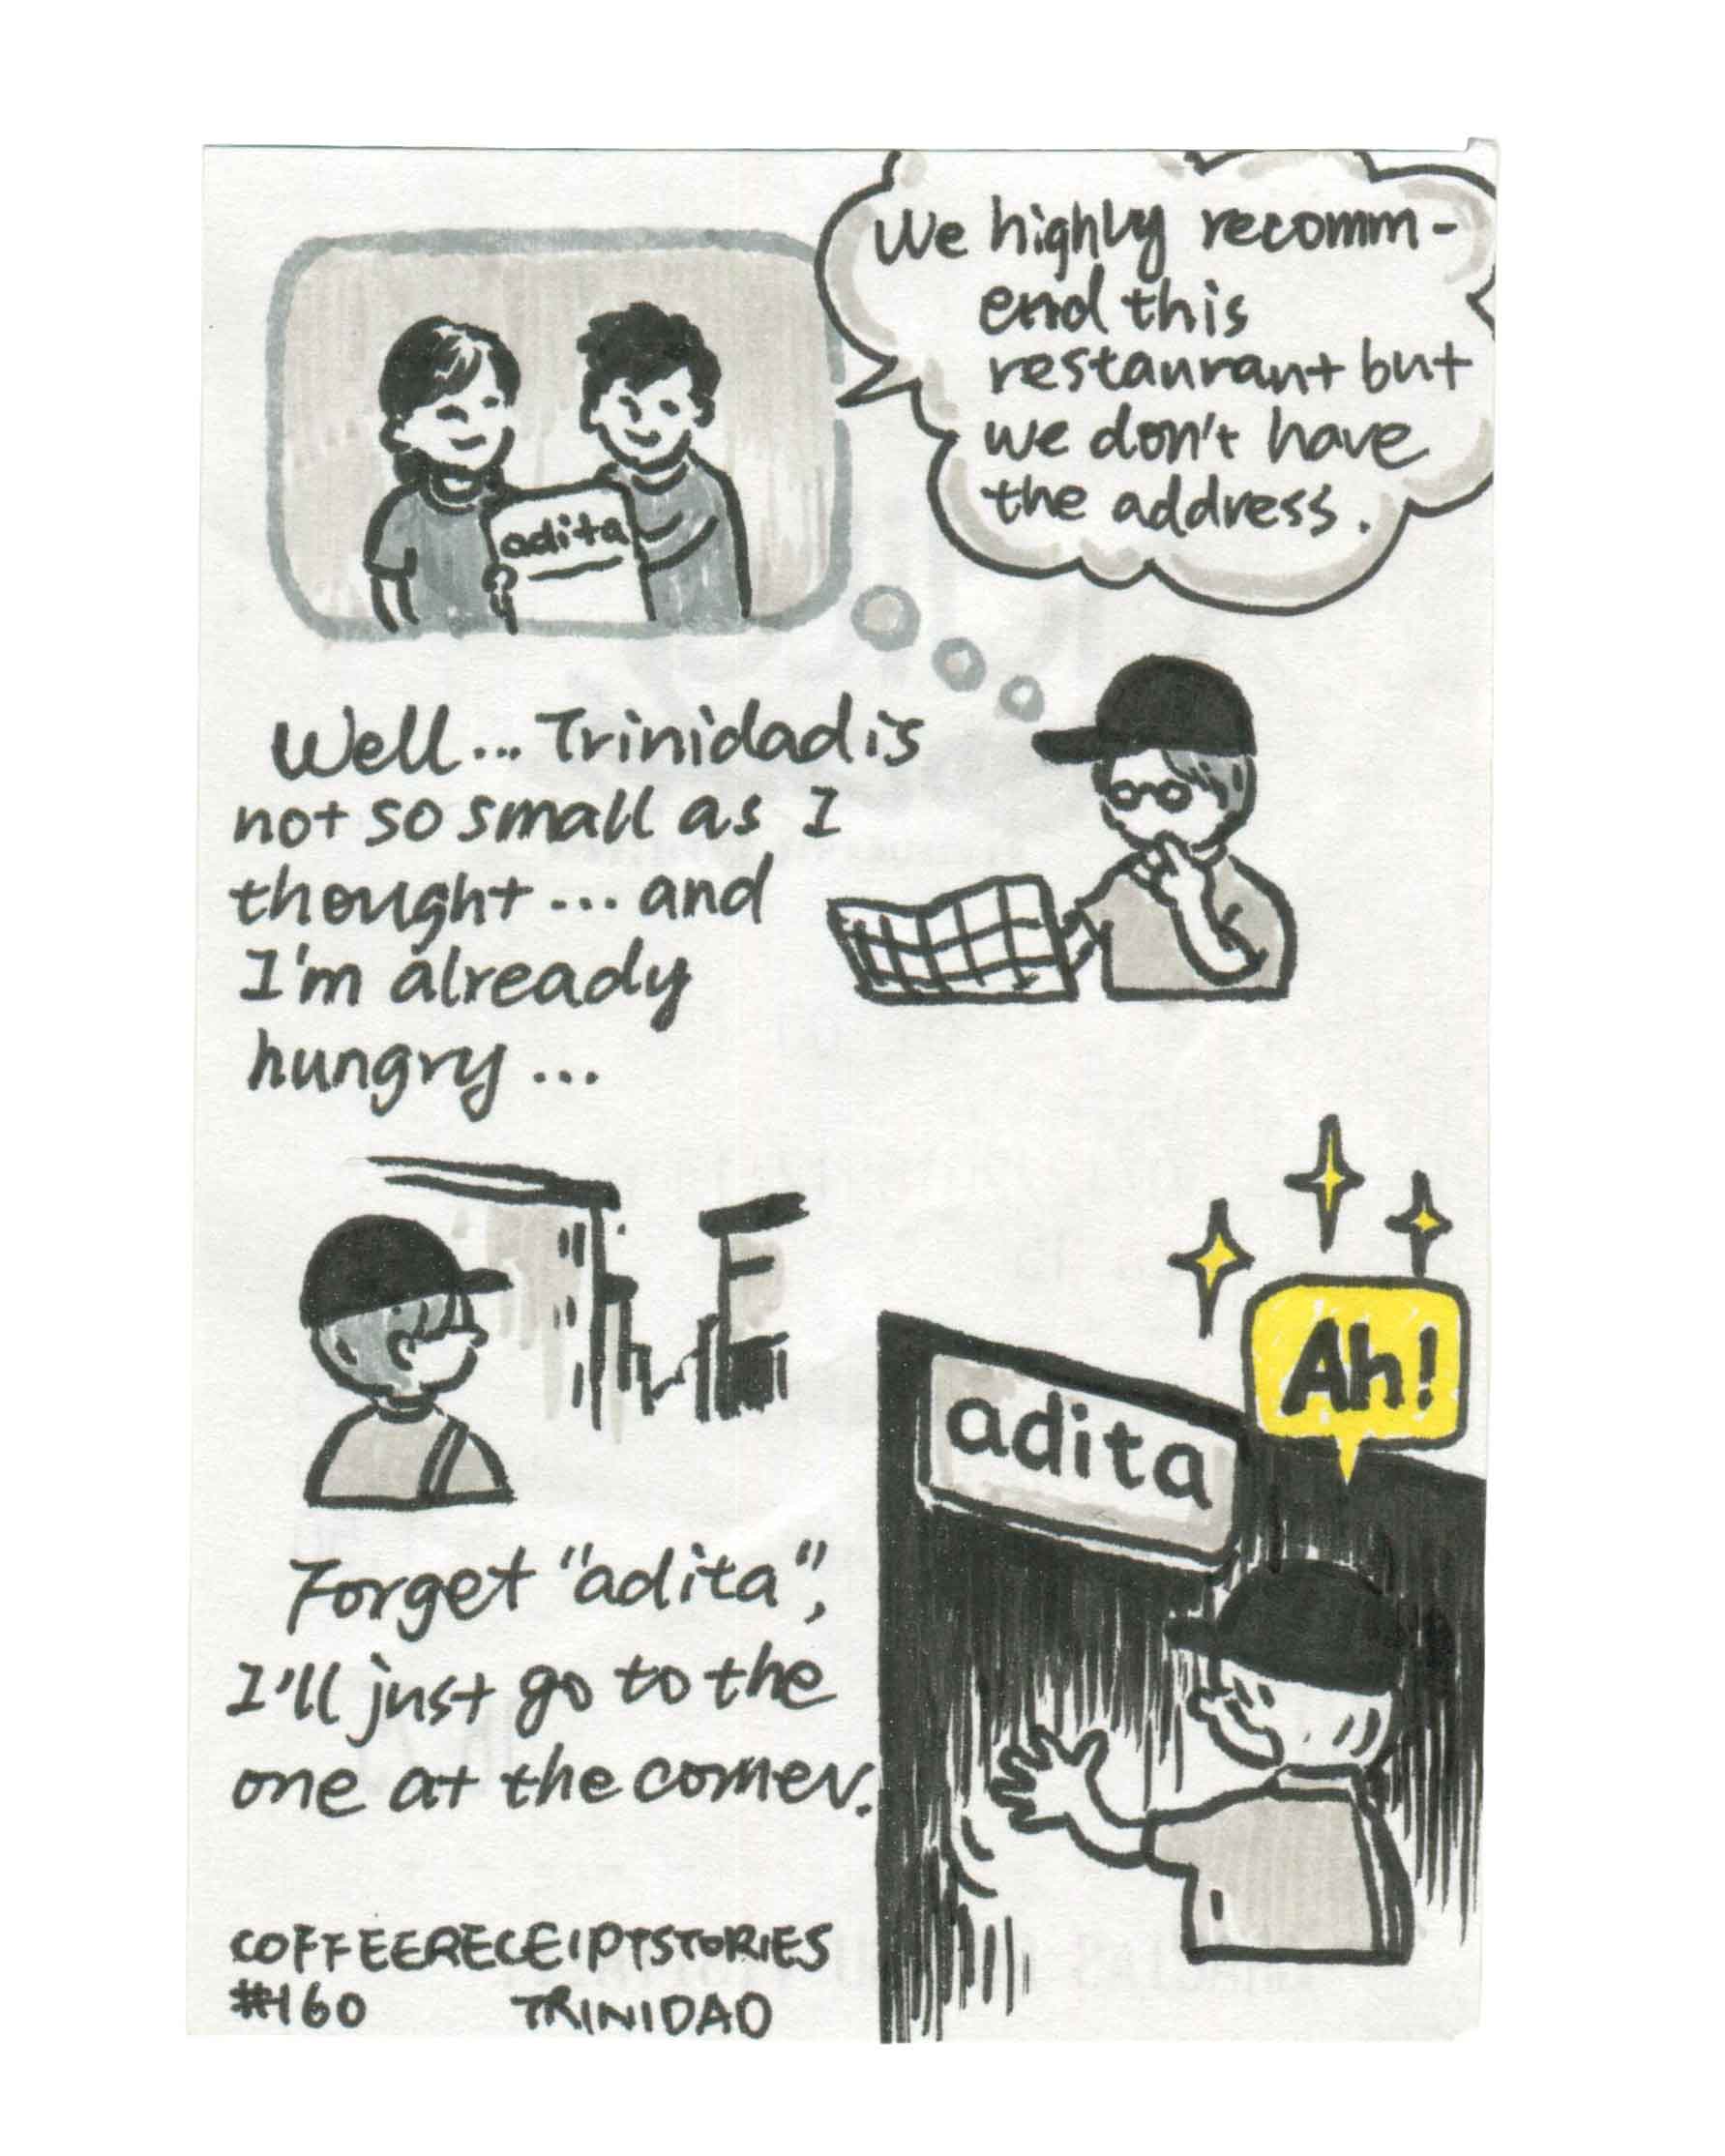 We highly recomm-
end this
restaurant but
we don't have
the address.
adita
Well... Trinidad is
not so small as I
thought... and
I'm already
hungry...
Ah!
adita
Forget "adita",
I'll just go to the
one at the corner.
COFFEERECEIPTSTORIES
#160 TRINIDAD